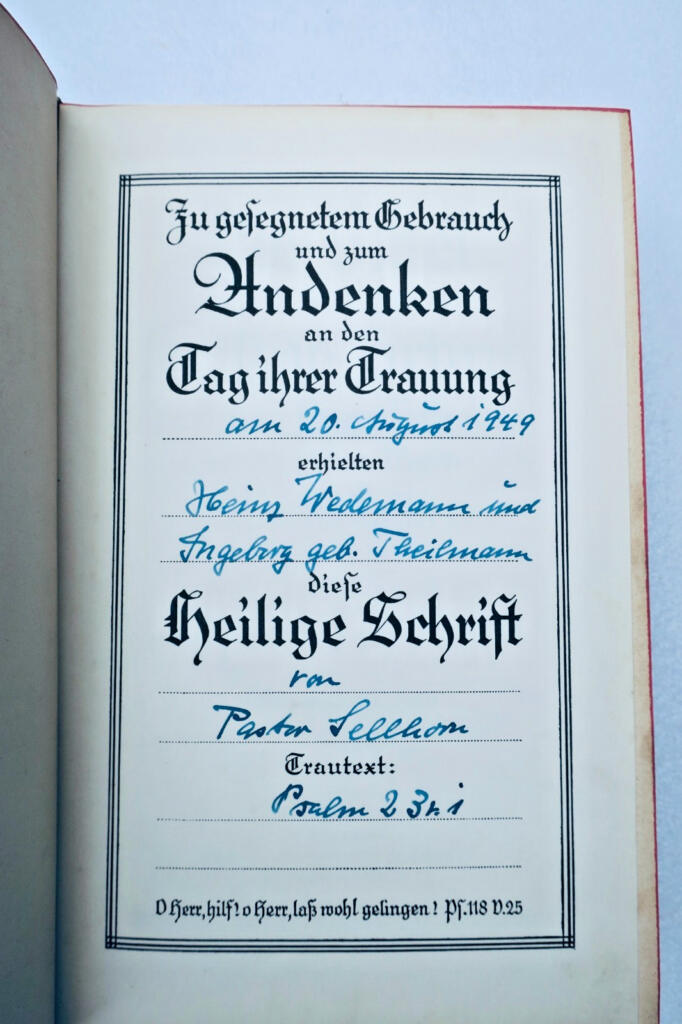 Zu gesegnetem Gebrauch
und zum
Andenken
an den
Tag ihrer Trauung
am 20. August 1949
erhielten
Heinz Wedemann und
Ingeborg geb. Theilmann
diese
Heilige Schrift
von
Pastor Sellhorn
Trautext:
Psalm 23 v. 1
O Herr, hilf! o Herr, laß wohl gelingen! Ps. 118 V. 25